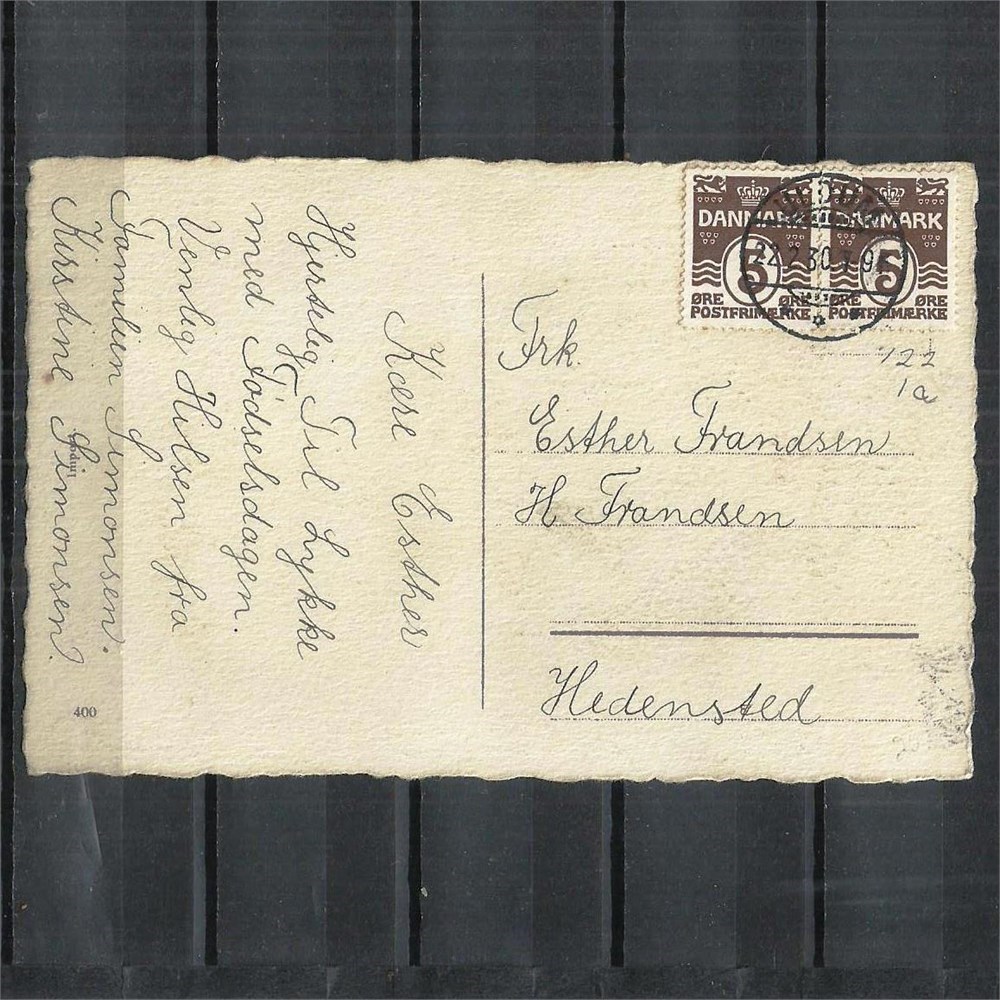 Kære Esther
Hjertelig Til Lykke
med Fødselsdagen.
Venlig Hilsen fra
Familien Simonsen.
Kirstine Simonsen.
400
DANMARK
5
ØRE ØRE
POSTFRIMÆRKE
DANMARK
5
ØRE ØRE
POSTFRIMÆRKE
22.2.30
122
1a
Frk.
Esther Frandsen
H Frandsen
Hedensted